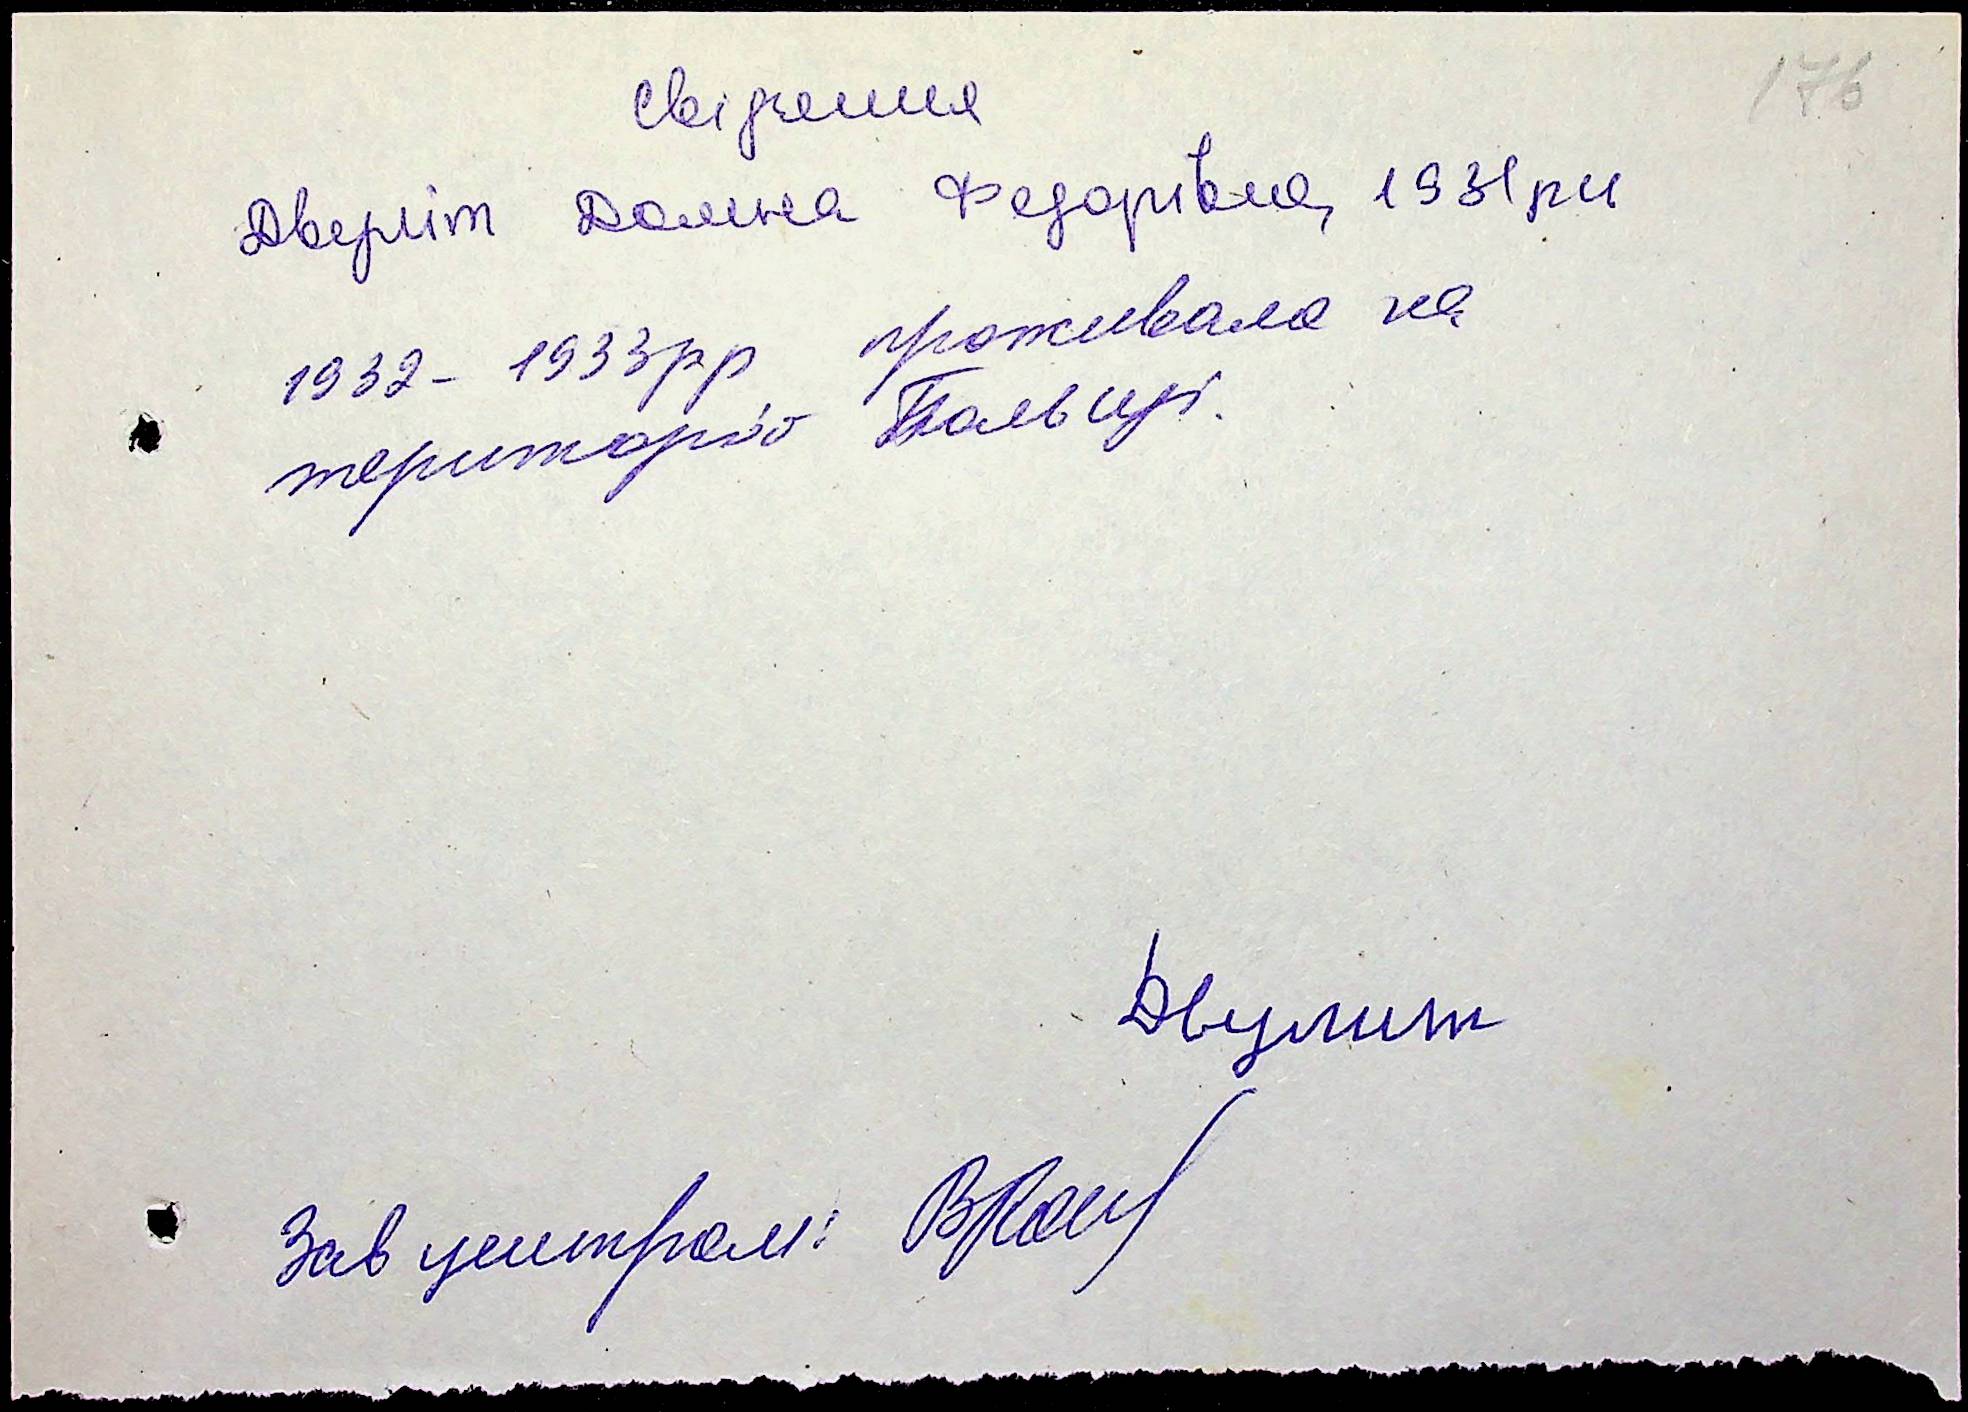 176
Свідчення
Двуліт Домна Федорівна, 1931рн
1932- 1933рр проживала на
території Польщі.
Двулит
Зав центром: